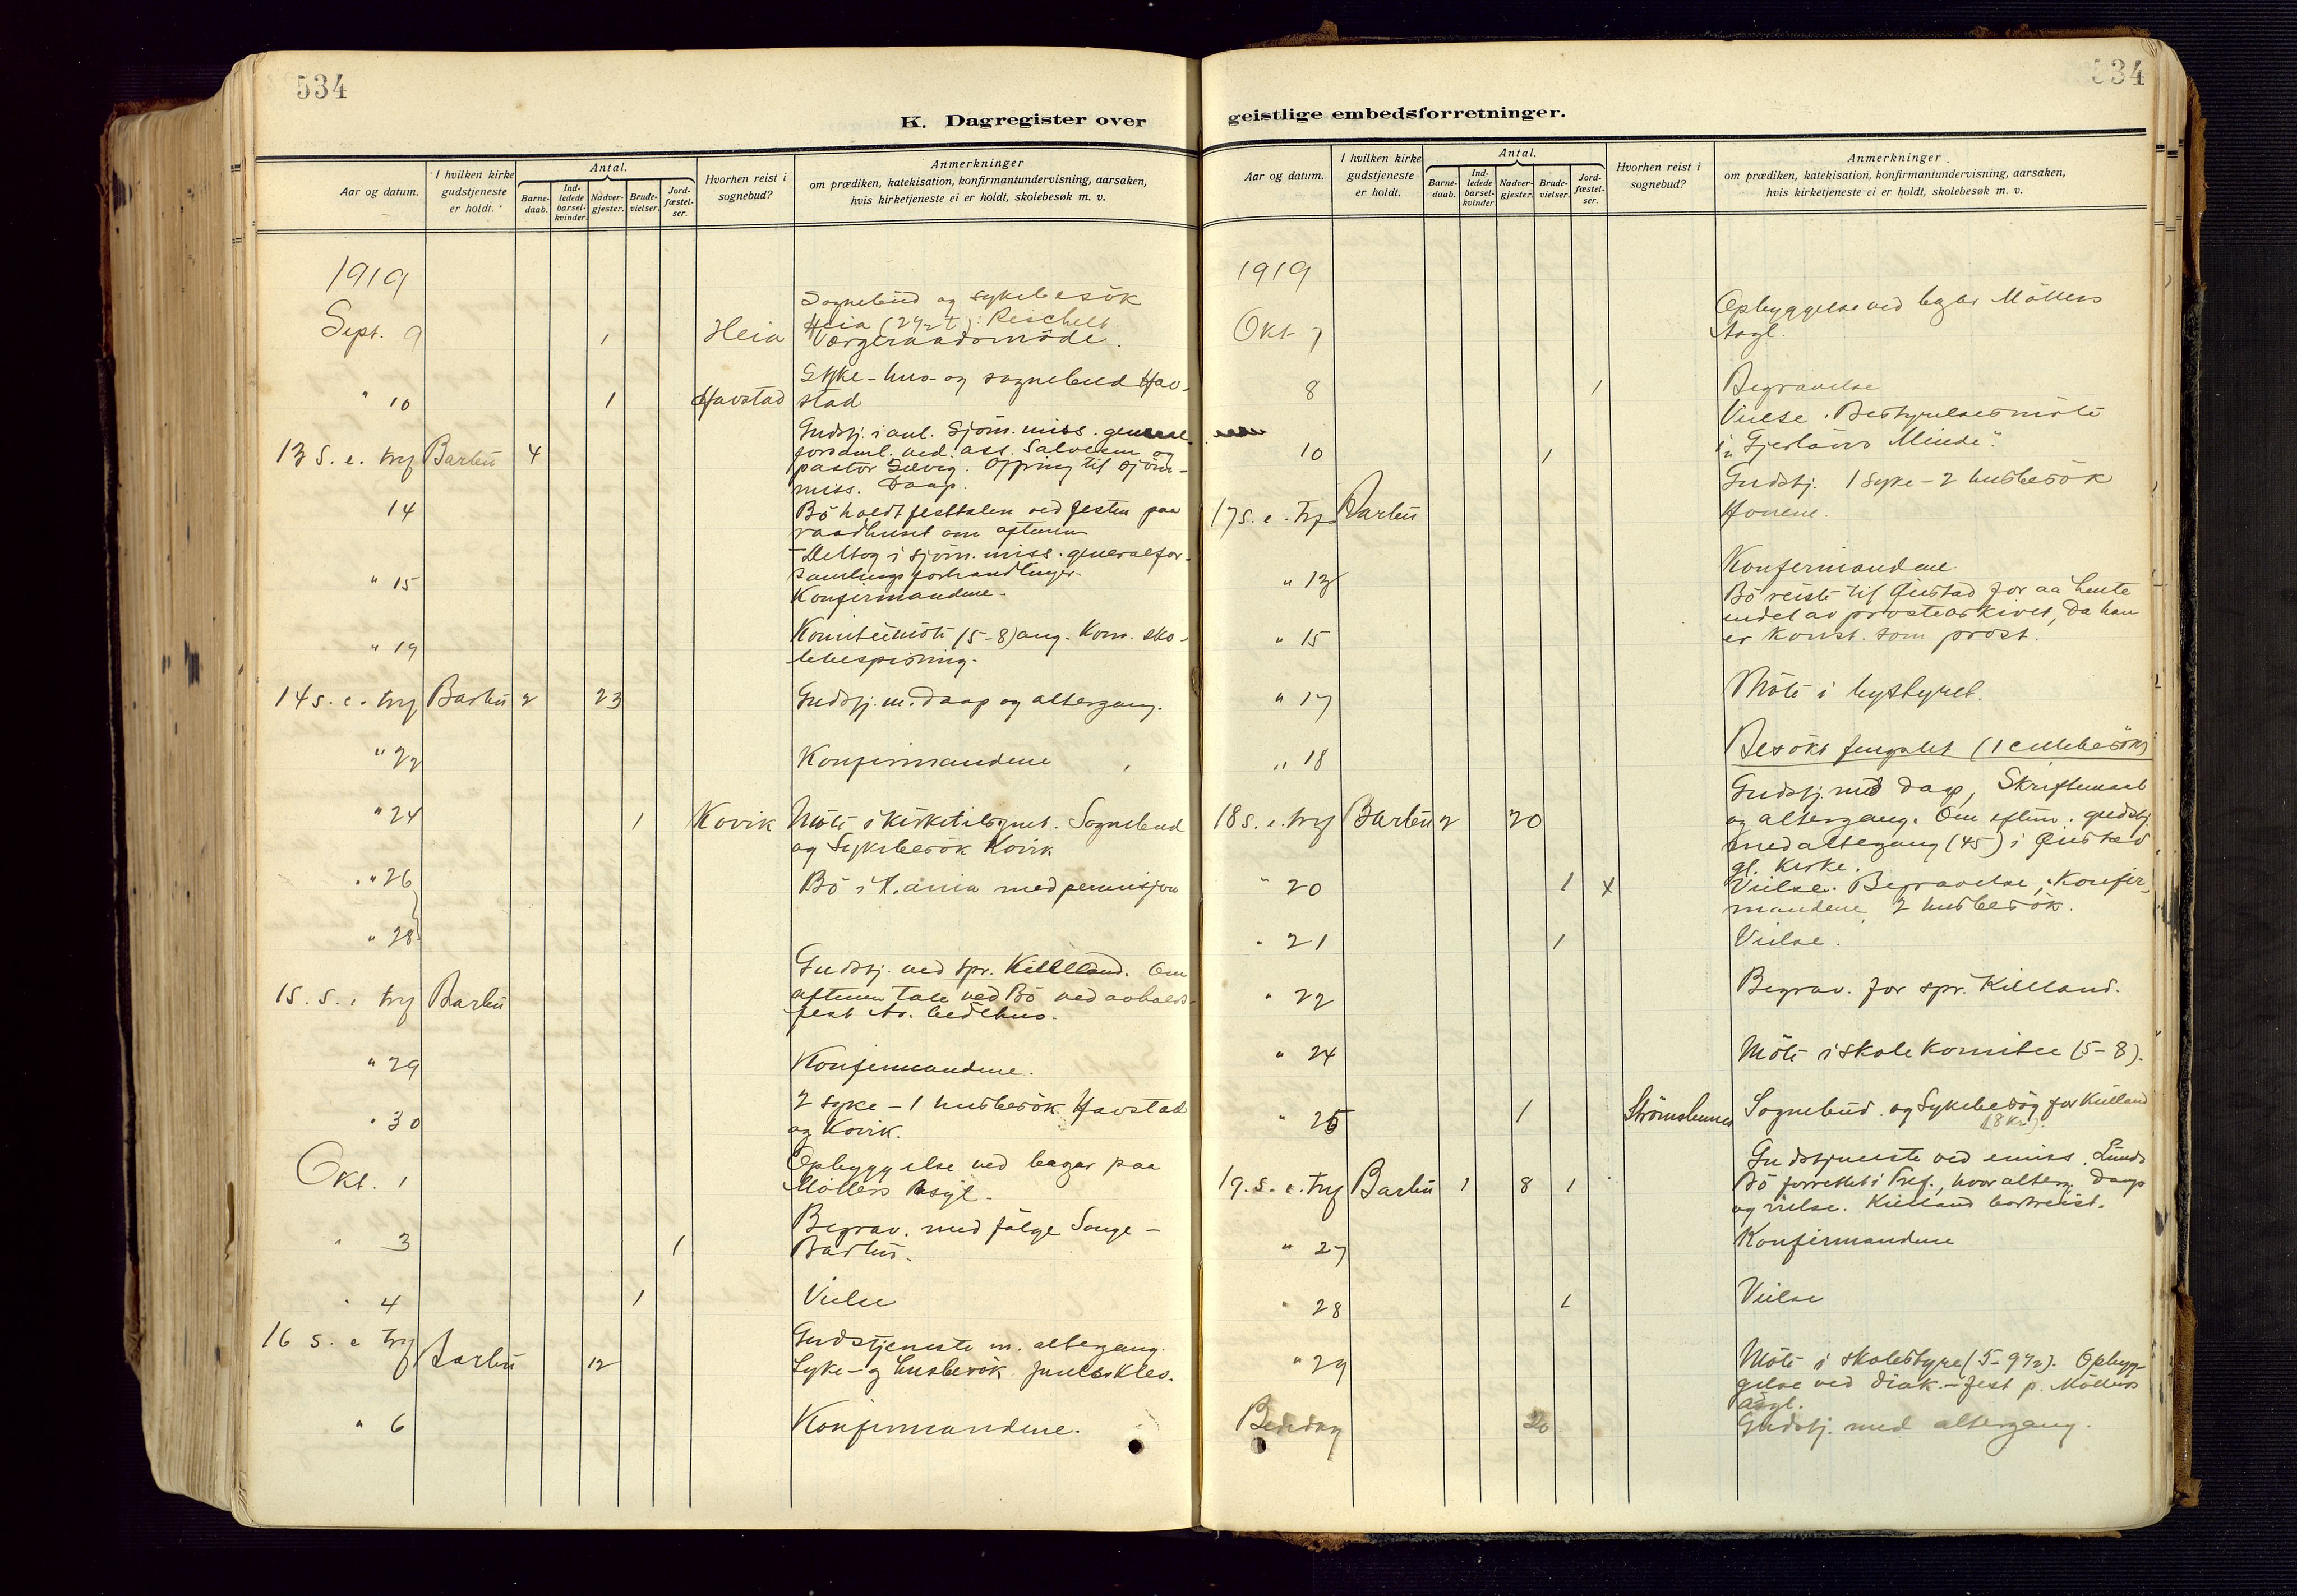 534
K. Dagregister over
Aar og datum.
I hvilken kirke
gudstjeneste
er holdt.
Antal.
Barne-
daab.
Ind-
ledede
barsel-
kvinder
Nadver-
gjester.
Brude-
vielser.
Jord-
fæstel-
ser.
Hvorhen reist i
sognebud?
Anmerkninger
om prædiken, katekisation, konfirmantundervisning, aarsaken,
hvis kirketjeneste ei er holdt, skolebesøk m. v.
1919
Sept. 9 1 Heia Sognebud og sykebesök
Heia (2½ t): Reschelt
Værgeraadsmöde.
" 10 1 Havstad Syke- hus- og sognebud Hav-
stad
13 S. e. tref Barbu 4 Gudstj. i anl. Sjöm. miss. general
forsaml. ved. ass. Salvesen og
pastor . Ofring til sjöm-
miss. Daap.
14 Bö holdt festtalen ved festen paa
raadhuset om aftenen
" 15 - Deltog i sjöm. miss. generalfor-
samlings forhandlinger.
Konfirmandene.
" 19 Komitémöte (5-8) ang. Kom. sko-
lebespisning.
14 s. e. tref Barbu 2 23 Gudstj. m. Daap og altergang.
" 22 Konfirmandene
" 24 1 Kovik Möte i Kirketilsynet. Sognebud
og Sykebesök Kovik
" 26 Bö i K.ania med permisjon
" 28
15. s. e tref Barbu Gudstj. ved spr. Kielland. Om
aftenen tale ved Bö ved avholds-
fest Ar. bedehus.
" 29 Konfirmandene.
" 30 2 syke - 1 husbesök Havstad
og Kovik.
Okt. 1 Opbyggelse ved bazar paa
Möllers Asyl.
" 3 1 Begrav. med fölge Songe -
Barbu.
" 4 1 Vielse
16 s. e tref Barbu 12 Gudstjeneste m. altergang.
Syke- og husbesök
" 6 Konfirmandene.
534
geistlige embedsforretninger.
Aar og datum.
I hvilken kirke
gudstjeneste
er holdt.
Antal.
Barne-
daab.
Ind-
ledede
barsel-
kvinder
Nadver-
gjester.
Brude-
vielser.
Jord-
fæstel-
ser.
Hvorhen reist i
sognebud?
Anmerkninger
om prædiken, katekisation, konfirmantundervisning, aarsaken,
hvis kirketjeneste ei er holdt, skolebesøk m. v.
1919
Okt 7 Opbyggelse ved bazar Möllers
Asyl.
8 1 Begravelse
10 1 Vielse. Bestyrelsesmöte
i „ Minde".
17 s. e. tref Barbu Gudstj. 1 syke- 2 husbesök
" 13 Konfirmandene
" 15 Bö reiste til Öiestad for aa hente
endel av prostearkivet, da han
er konst. som prost.
" 17 Möte i bystyret.
" 18 Besökt fengslet (1 cellebesök)
18 s. e. tref Barbu 2 20 Gudstj. med daap, Skriftemaal
og altergang. Om efterm. gudstj.
med altergang (45) i Öiestad
gl. Kirke.
" 20 1 x Vielse. Begravelse, Konfir-
mandene 2 husbesök.
" 21 1 Vielse.
" 22 Begrav. for spr. Kielland.
" 24 Möte i skole komitee (5-8).
" 25 1 Sognebud. og Sykebesög for Kielland
(8 Kr.).
19. s. e. tref Barbu 1 8 1 Gudstjeneste ved emiss. Lunde
Bö forrettet i Tref., hvor alterg. Daap
og vielse. Kielland bortreist.
" 27 Konfirmandene
" 28 1 Vielse
" 29 Möte i skolestyre (5-9½). Opbyg-
gelse ved diak.-fest p. Möllers
asyl.
Bededag 20 Gudstj. med altergang.